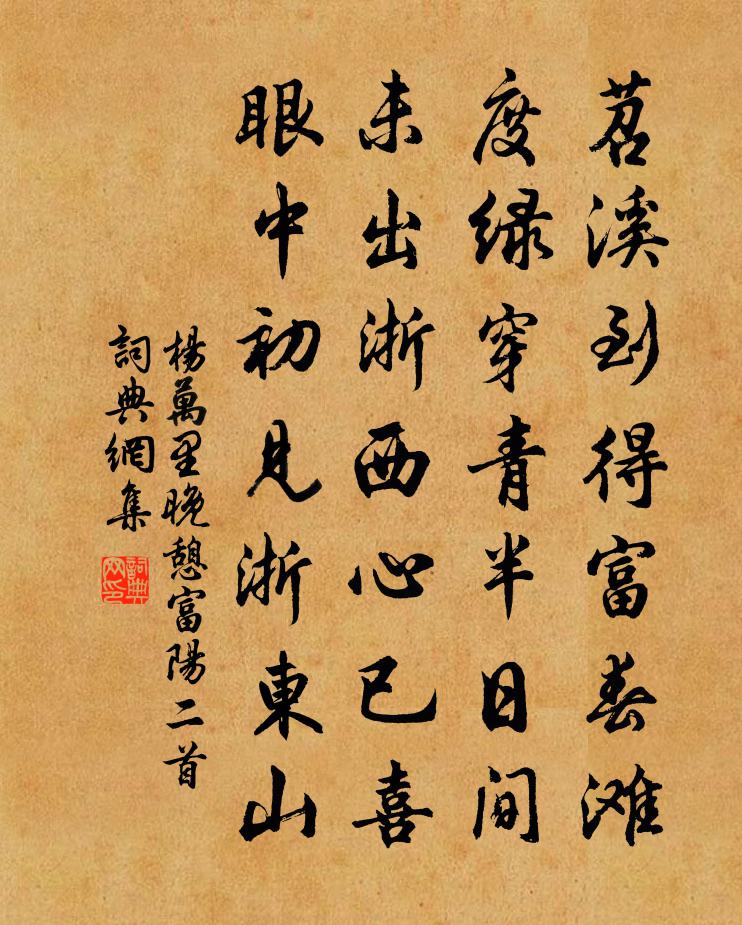 苕溪到得富春滩
度绿穿青半日间
未出浙西心已喜
眼中初见浙東山
楊萬里晚憩富陽二首
詞典網集
詞典网印